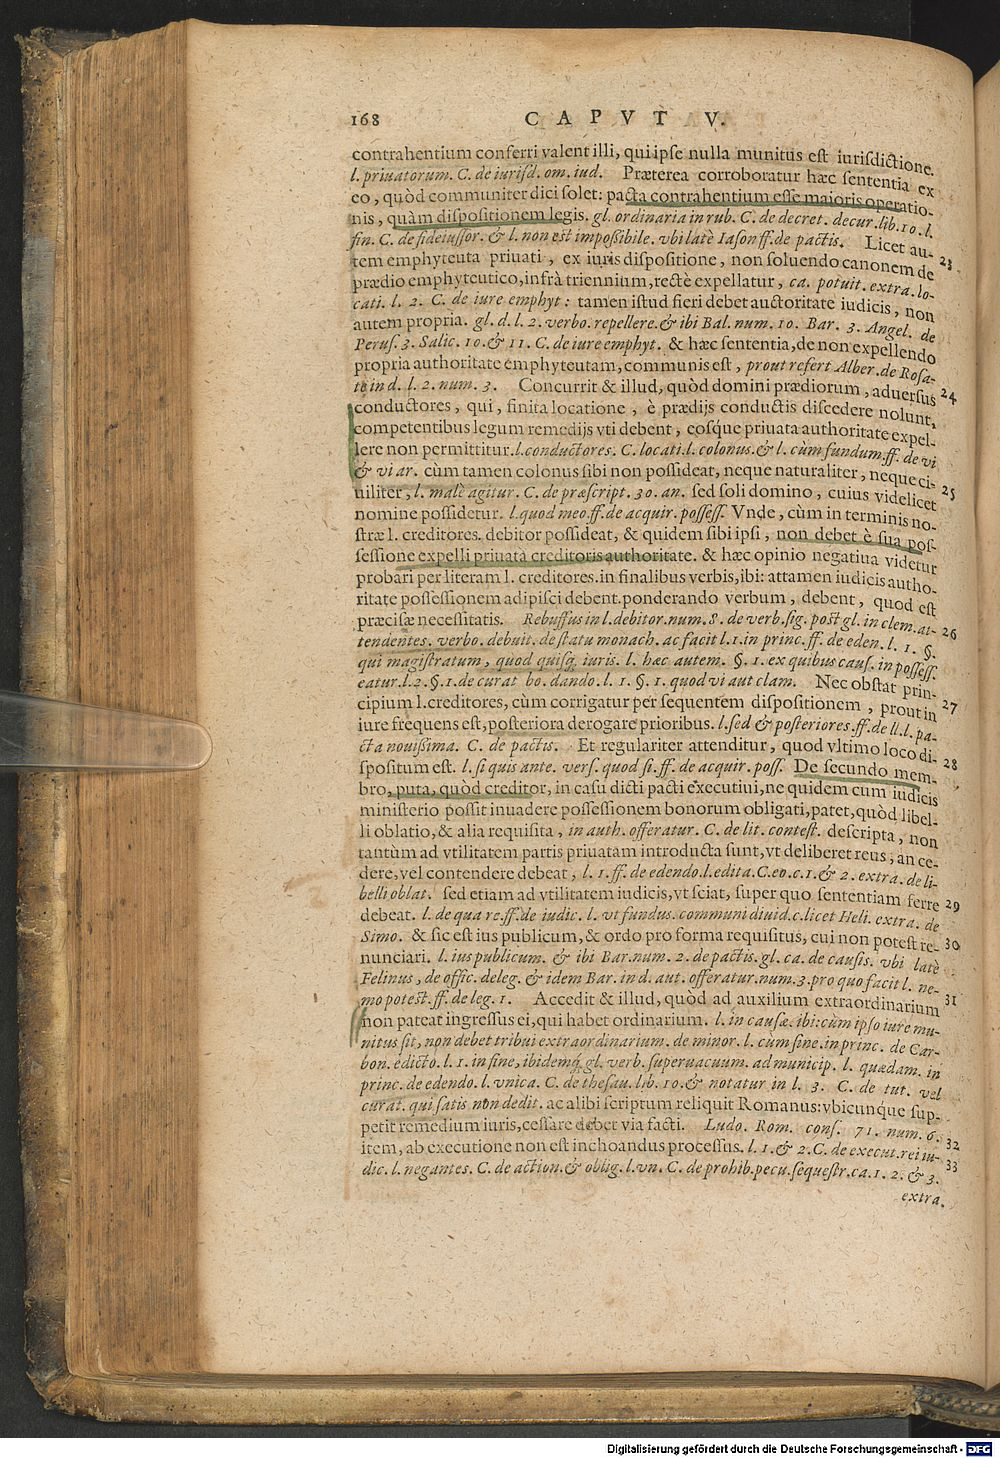 168 CAPVT V.
contrahentium conferri valent illi, qui ipse nulla munitus est iurisdictione.
l. priuatorum. C. de iurisd. om. iud. Præterea corroboratur hæc sententia ex
eo, quòd communiter dici solet: pacta contrahentium esse maioris operatio-
nis, quàm dispositionem legis. gl. ordinaria in rub. C. de decret. decur. lib. 10. l.
fin. C. de fideiussor. & l. non est impoßibile. vbi latè Iason ff. de pactis. Licet au-
tem emphyteuta priuati, ex iuris dispositione, non soluendo canonem de 23
prædio emphyteutico, infrà triennium, rectè expellatur, ca. potuit. extra. lo-
cati. l. 2. C. de iure emphyt: tamen istud fieri debet auctoritate iudicis, non
autem propria. gl. d. l. 2. verbo. repellere. & ibi Bal. num. 10. Bar. 3. Angel. de
Perus. 3. Salic. 10. & 11. C. de iure emphyt. & hæc sententia, de non expellendo
propria authoritate emphyteutam, communis est, prout refert Alber. de Rosa-
te in d. l. 2. num. 3. Concurrit & illud, quòd domini prædiorum, aduersus 24
conductores, qui, finita locatione, è prædijs conductis discedere nolunt,
competentibus legum remedijs vti debent, eosque priuata authoritate expel-
lere non permittitur. l. conductores. C. locati. l. colonus. & l. cùm fundum. ff. de vi
& vi ar. cùm tamen colonus sibi non possideat, neque naturaliter, neque ci-
uiliter, l. malè agitur. C. de præscript. 30. an. sed soli domino, cuius videlicet 25
nomine possidetur. l. quod meo. ff. de acquir. possess. Vnde, cùm in terminis no-
stræ l. creditores. debitor possideat, & quidem sibi ipsi, non debet è sua pos-
sessione expelli priuatâ creditoris authoritate. & hæc opinio negatiua videtur
probari per literam l. creditores. in finalibus verbis, ibi: attamen iudicis autho-
ritate possessionem adipisci debent. ponderando verbum, debent, quod est
præcisæ necessitatis. Rebuffus in l. debitor. num. 8. de verb. sig. post gl. in clem. at- 26
tendentes. verbo. debuit. de statu monach. ac facit l. 1. in princ. ff. de eden. l. 1. §.
qui magistratum, quod quisq; iuris. l. hæc autem. §. 1. ex quibus caus. in possess.
eatur. l. 2. §. 1. de curat bo. dando. l. 1. §. 1. quod vi aut clam. Nec obstat prin-
cipium l. creditores, cùm corrigatur per sequentem dispositionem, prout in 27
iure frequens est, posteriora derogare prioribus. l. sed & posteriores. ff. de ll. l. pa-
cta nouißima. C. de pactis. Et regulariter attenditur, quod vltimo loco di-
spositum est. l. si quis ante. vers. quod si. ff. de acquir. poss. De secundo mem- 28
bro, puta, quòd creditor, in casu dicti pacti executiui, ne quidem cum iudicis
ministerio possit inuadere possessionem bonorum obligati, patet, quòd libel-
li oblatio, & alia requisita, in auth. offeratur. C. de lit. contest. descripta, non
tantùm ad vtilitatem partis priuatam introducta sunt, vt deliberet reus, an ce-
dere, vel contendere debeat, l. 1. ff. de edendo. l. edita. C. eo. c. 1. & 2. extra. de li-
belli oblat. sed etiam ad vtilitatem iudicis, vt sciat, super quo sententiam ferre 29
debeat. l. de qua re. ff. de iudic. l. vt fundus. communi diuid. c. licet Heli. extra. de
Simo. & sic est ius publicum, & ordo pro forma requisitus, cui non potest re- 30
nunciari. l. ius publicum. & ibi Bar. num. 2. de pactis. gl. ca. de causis. vbi latè
Felinus, de offic. deleg. & idem Bar. in d. aut. offeratur. num. 3. pro quo facit l. ne-
mo potest. ff. de leg. 1. Accedit & illud, quòd ad auxilium extraordinarium 31
non pateat ingressus ei, qui habet ordinarium. l. in causæ. ibi: cùm ipso iure mu-
nitus sit, non debet tribui extraordinarium. de minor. l. cùm sine. in princ. de Car-
bon. edicto. l. 1. in fine, ibidemq; gl. verb. superuacuum. ad municip. l. quædam. in
princ. de edendo. l. vnica. C. de thesau. lib. 10. & notatur in l. 3. C. de tut. vel
curat. qui satis non dedit. ac alibi scriptum reliquit Romanus: vbicunque sup-
petit remedium iuris, cessare debet via facti. Ludo. Rom. cons. 71. num. 6.
item, ab executione non est inchoandus processus. l. 1. & 2. C. de execut. rei iu- 32
dic. l. negantes. C. de action. & oblig. l. vn. C. de prohib. pecu. sequestr. ca. 1. 2. & 3. 33
extra.
Digitalisierung gefördert durch die Deutsche Forschungsgemeinschaft - DFG